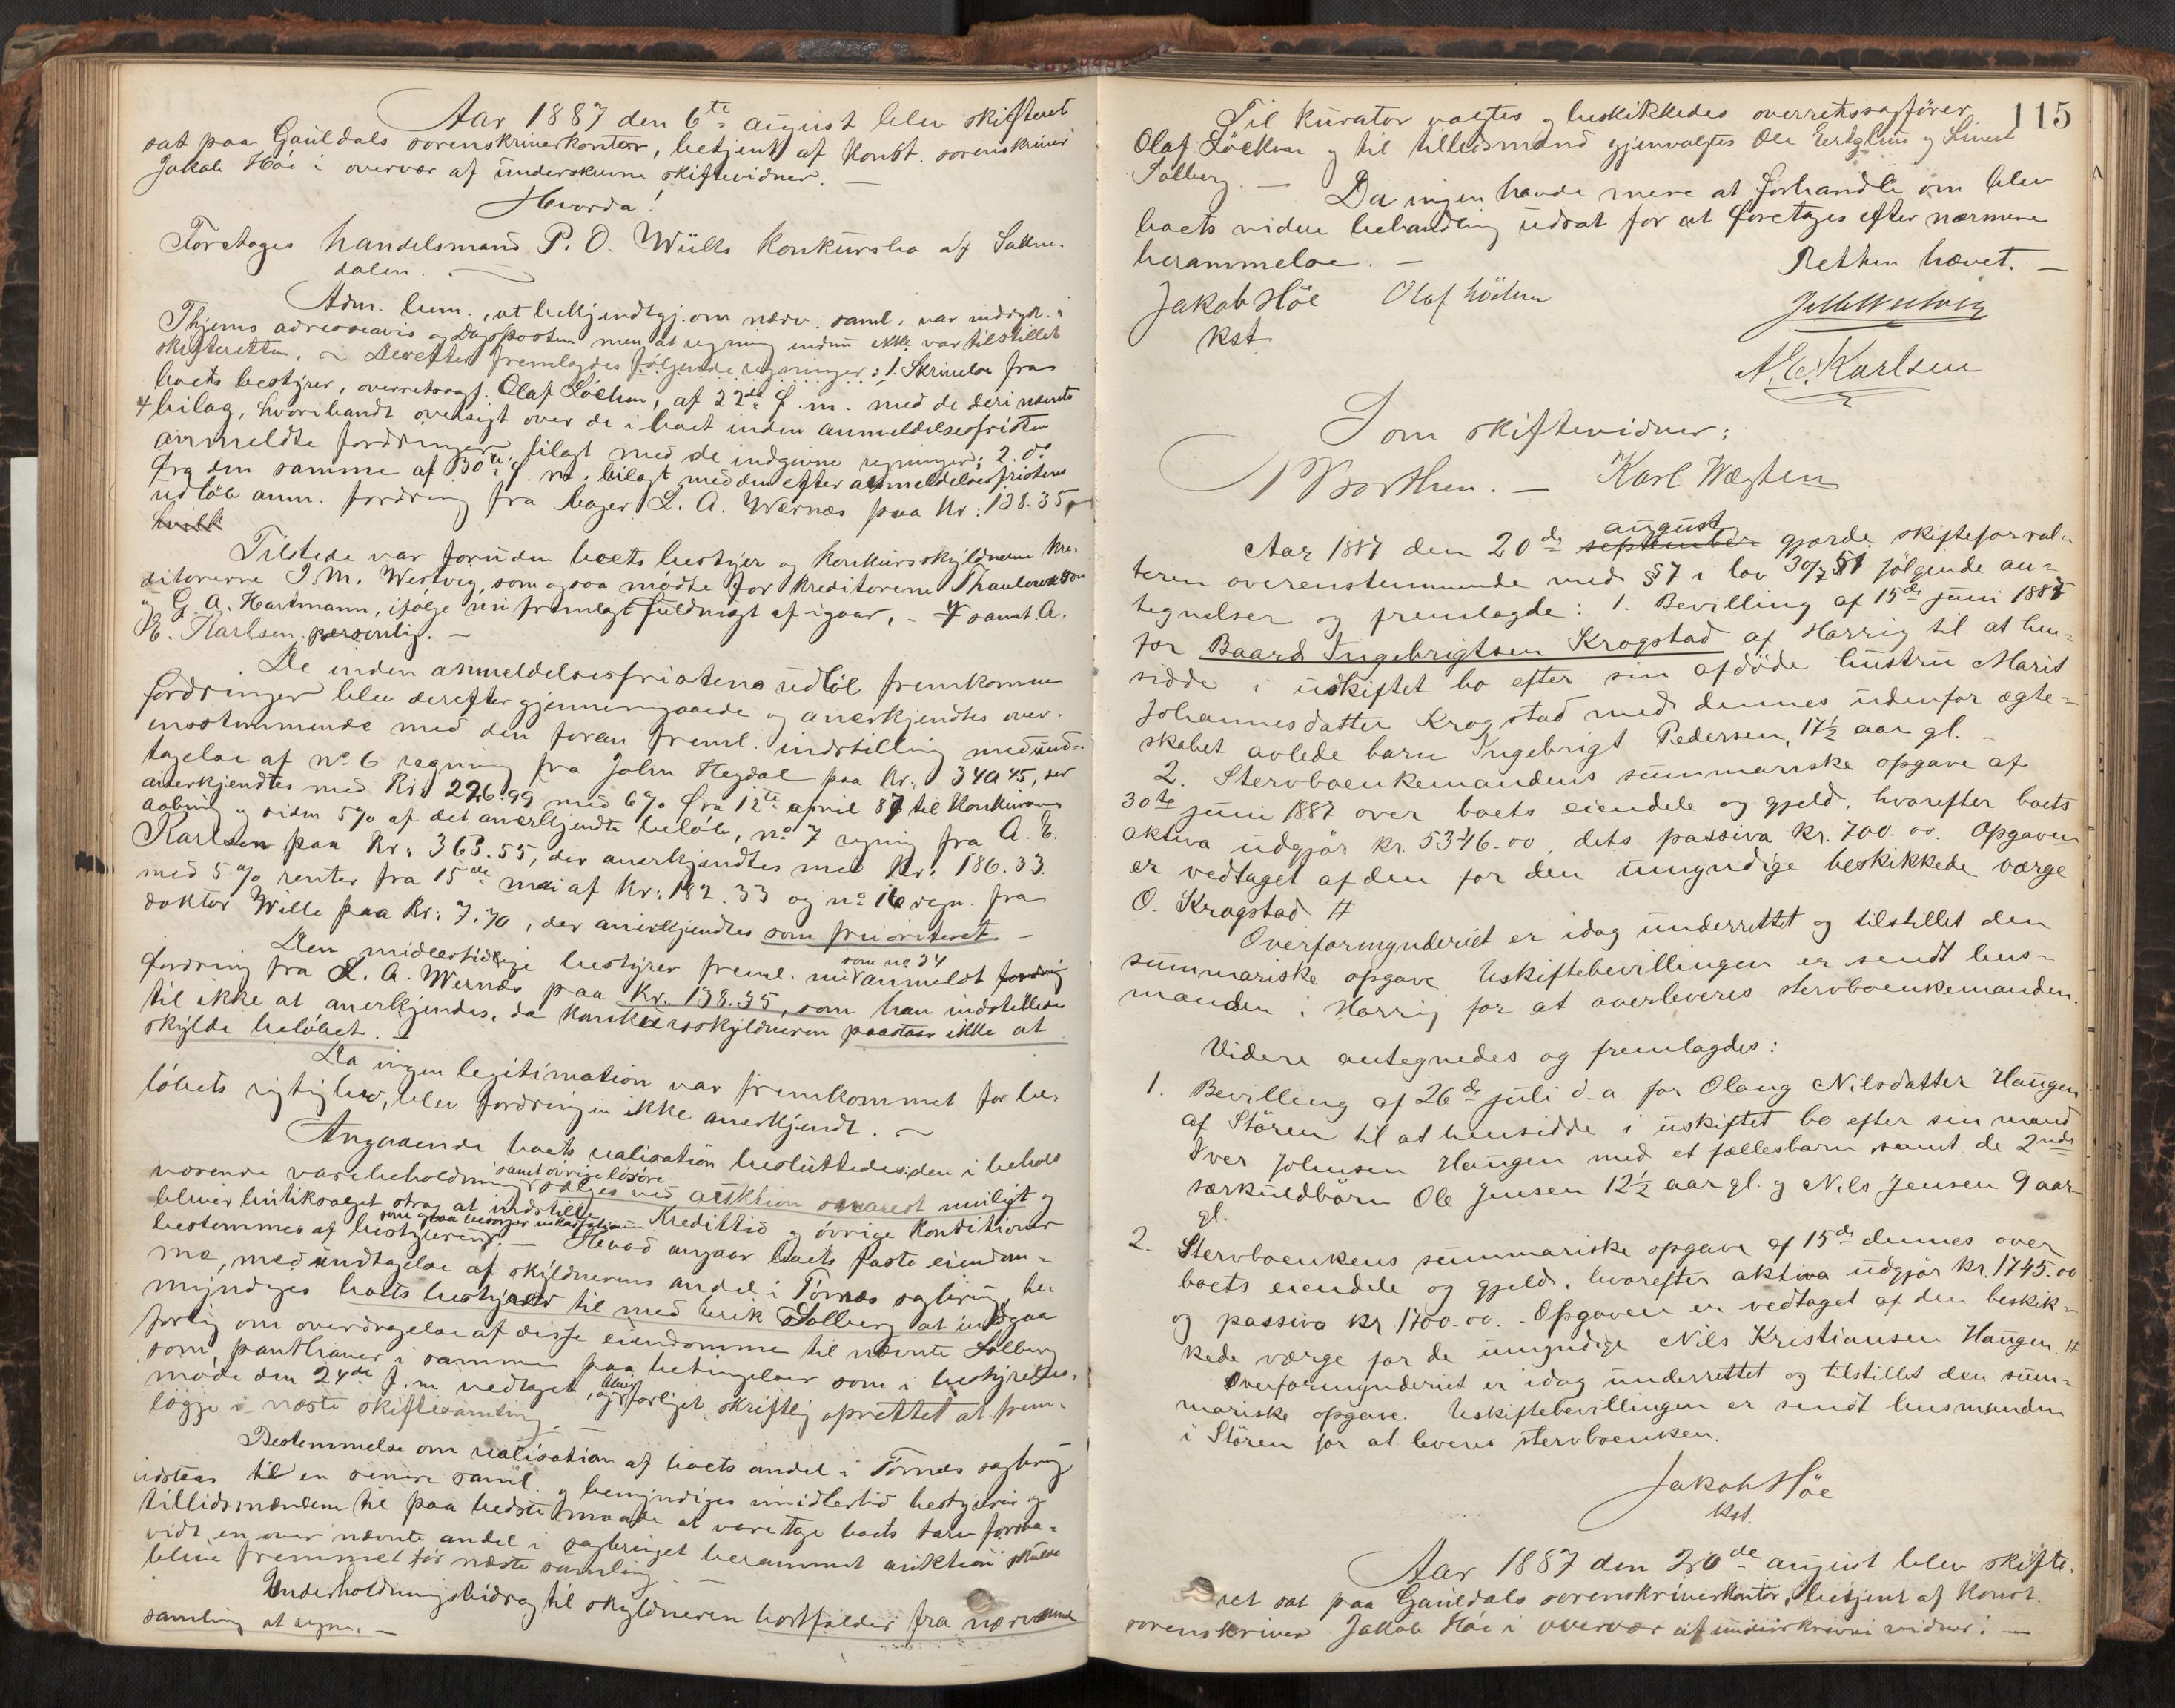 Aar 1887 den 6te august blev skifteret
sat paa Gauldals sorenskriverkontor, betjent af konst. sorenskriver
Jakob Höe i overvær af underskrevne skiftevidner. —
Hvorda!
Foretages handelsmand P. O. Wulls konkursbo af Sokne-
dalen.
Adm. bem., at bekjendtgj. om nærv. saml. var indryk. i
Thjems adresseavis og Dagsposten men at regning endnu ikke var tilstillet
skifteretten. — Derefter fremlagdes følgende regninger: 1. Skrivelse fra
boets bestyrer, overretssagf. Olaf Löchen, af 22de f. m. med de deri nævnte
4 bilag, hvoriblandt oversigt over de i boet inden anmeldelsesfristen
anmeldte fordringer bilagt med de indgivne regninger; 2. do
fra den samme af 30te f. m., bilagt med den efter anmeldelsesfristens
udløb anm. fordring fra bager L. A. Wernæs paa Kr: 138.35,
hvilk
Tilstede var foruden boets bestyrer og konkursskyldneren kre-
ditorerne J. M. Westvig, som ogsaa mødte for kreditorerne Thaulow & Søn
og G. A. Hartmann, ifølge nu fremlagt fuldmagt af igaar, - samt A.
E. Karlsen personlig. —
De inden anmeldelsesfristens udløb fremkomne
fordringer blev derefter gjennemgaaede og anerkjendtes over-
ensstemmende med den foran freml. indstilling med und-
tagelse af no 6 regning fra John Hegdal paa Kr: 340.45, der
anerkjendtes med Kr: 226.99 med 6% fra 12te april 87 til konkursens
aabning og siden 5% af det anerkjendte beløb, no 7 regning fra A. E.
Karlsen paa Kr: 363.55, der anerkjendtes med Kr: 186.33.
med 5% renter fra 15de mai af Kr: 182.33 og no 16 regn. fra
doktor Wille paa Kr: 7.70, der anerkjendtes som prioriteret. —
Den midlertidige bestyrer freml. nu som no 34 anmeldt fordring
fordring fra L. A. Wernæs paa Kr. 138.35, som han indstillede
til ikke at anerkjendes, da konkursskyldneren paastaar ikke at
skylde beløbet. —
Da ingen legitimation var fremkommet for be-
løbets rigtighed, blev fordringen ikke anerkjendt. —
Angaaende boets realisation besluttedes: den i behold
værende varebeholdning samt øvrige løsøre sælges ved auktion snarest muligt og
bliver butiksalget strax at indstille. Kredittid og øvrige konditioner
bestemmes af bestyreren, som ogsaa besørger inkassationen. — Hvad angaar boets faste eiendom-
me, med undtagelse af skyldnerens andel i Tørnæs sagbrug, be-
myndiges boets bestyrelse til med Erik Solberg at indgaa
forlig om overdragelse af disse eiendomme til nævnte Solberg
som panthaver i samme paa betingelser som i bestyrelses-
møde den 24de f. m. vedtaget, og bliver forliget skriftlig oprettet at frem-
lægge i næste skiftesamling.
Bestemmelse om realisation af boets andel i Tørnæs sagbrug
udstaar til en senere saml. og bemyndiges imidlertid bestyrer og
tillidsmændene til paa bedste maade at varetage boets tarv forsaa-
vidt en over nævnte andel i sagbruget berammet auktion skulde
blive fremmet før næste samling. —
Underholdningsbidrag til skyldneren bortfalder fra nærværende
samling at regne. —
115
Til kurator valgtes og beskikkedes overretssagfører
Olaf Löchen og til tillidsmænd gjenvalgtes Ole Ertzhus og Sivert
Solberg. — Da ingen havde mere at forhandle om blev
boets videre behandling udsat for at foretages efter nærmere
berammelse. —
Retten hævet. —
Jakob Höe Olaf Löchen
kst.
J M Westvig
A. E. Karlsen
Som skiftevidner:
Borthen. — Karl Wægten
Aar 1887 den 20de september august gjorde skifteforval-
teren overensstemmende med §7 i lov 30/7 51 følgende an-
tegnelser og fremlagde: 1. Bevilling af 15de juni 1887
for Baard Ingebrigtsen Krogstad af Horrig til at hen-
sidde i uskiftet bo efter sin afdøde hustru Marit
Johannesdatter Krogstad med dennes udenfor ægte-
skabet avlede barn Ingebrigt Pedersen, 17½ aar gl. –
2. Stervboenkemandens summariske opgave af
30te juni 1887 over boets eiendele og gjeld, hvorefter boets
aktiva udgjør kr. 5346.00, dets passiva kr. 700.00. Opgaven
er vedtaget af den for den umyndige beskikkede værge
O. Krogstad #
Overformynderiet er idag underrettet og tilstillet den
summariske opgave. Uskiftebevillingen er sendt lens-
manden i Horrig for at overleveres stervboenkemanden.
Videre antegnedes og fremlagdes:
1. Bevilling af 26de juli d. a. for Olaug Nilsdatter Haugen
af Stören til at hensidde i uskiftet bo efter sin mand
Iver Johnsen Haugen med et fællesbarn samt de 2nde
særkuldbörn Ole Jensen 12½ aar gl. og Nils Jensen 9 aar
gl.
2. Stervboenkens summariske opgave af 15de dennes over
boets eiendele og gjeld, hvorefter aktiva udgjør kr. 1745.00
og passiva kr 1700.00. - Opgaven er vedtaget af den beskik-
kede værge for de umyndige Nils Kristiansen Haugen. #
Overformynderiet er idag underrettet og tilstillet den sum-
mariske opgave. Uskiftebevillingen er sendt lensmanden
i Stören for at leveres stervboenken.
Jakob Höe
kst.
Aar 1887 den 20de august blev skifte-
ret sat paa Gauldals sorenskriverkontor, betjent af konst.
sorenskriver Jakob Höe i overvær af underskrevne vidner: —